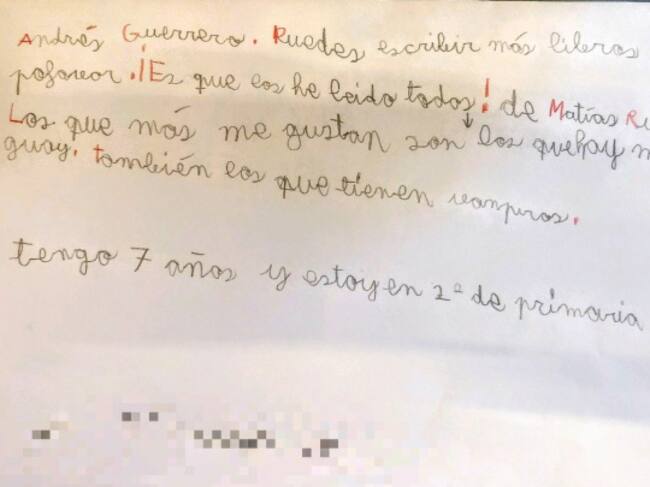 Andrés Guerrero. Puedes escribir más libros
pofavor. ¡Es que los he leido todos! de Matías Ru
Los que más me gustan son ↓ los que hay m
guay. también los que tienen vampiros.
tengo 7 años y estoy en 2º de primaria